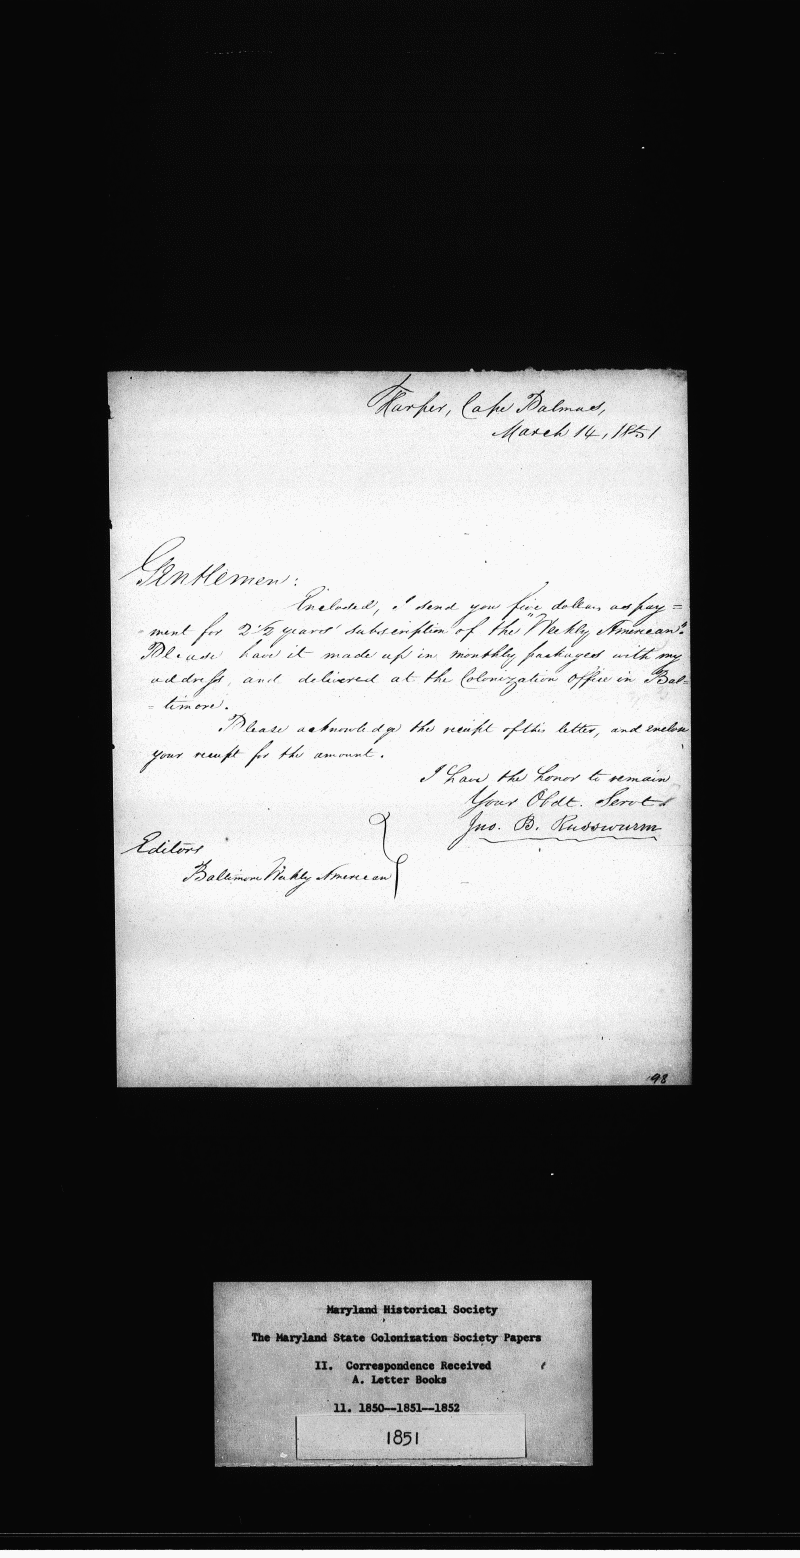 Harper, Cape Palmas,
March 14, 1851
Gentlemen:
Enclosed, I send you five dollars as pay=
=ment for 2 1/2 years' subscription of the "Weekly American".
Please have it made up in monthly packages with my
address, and delivered at the Colonization Office in Bal=
=timore.
Please acknowledge the receipt of this letter, and enclose
your receipt for the amount.
I have the honor to remain
Your Obdt. Servt
Jno. B. Russwurm
Editors
Baltimore Weekly American
98
Maryland Historical Society
The Maryland State Colonization Society Papers
II. Correspondence Received
A. Letter Books
11. 1850--1851--1852
1851